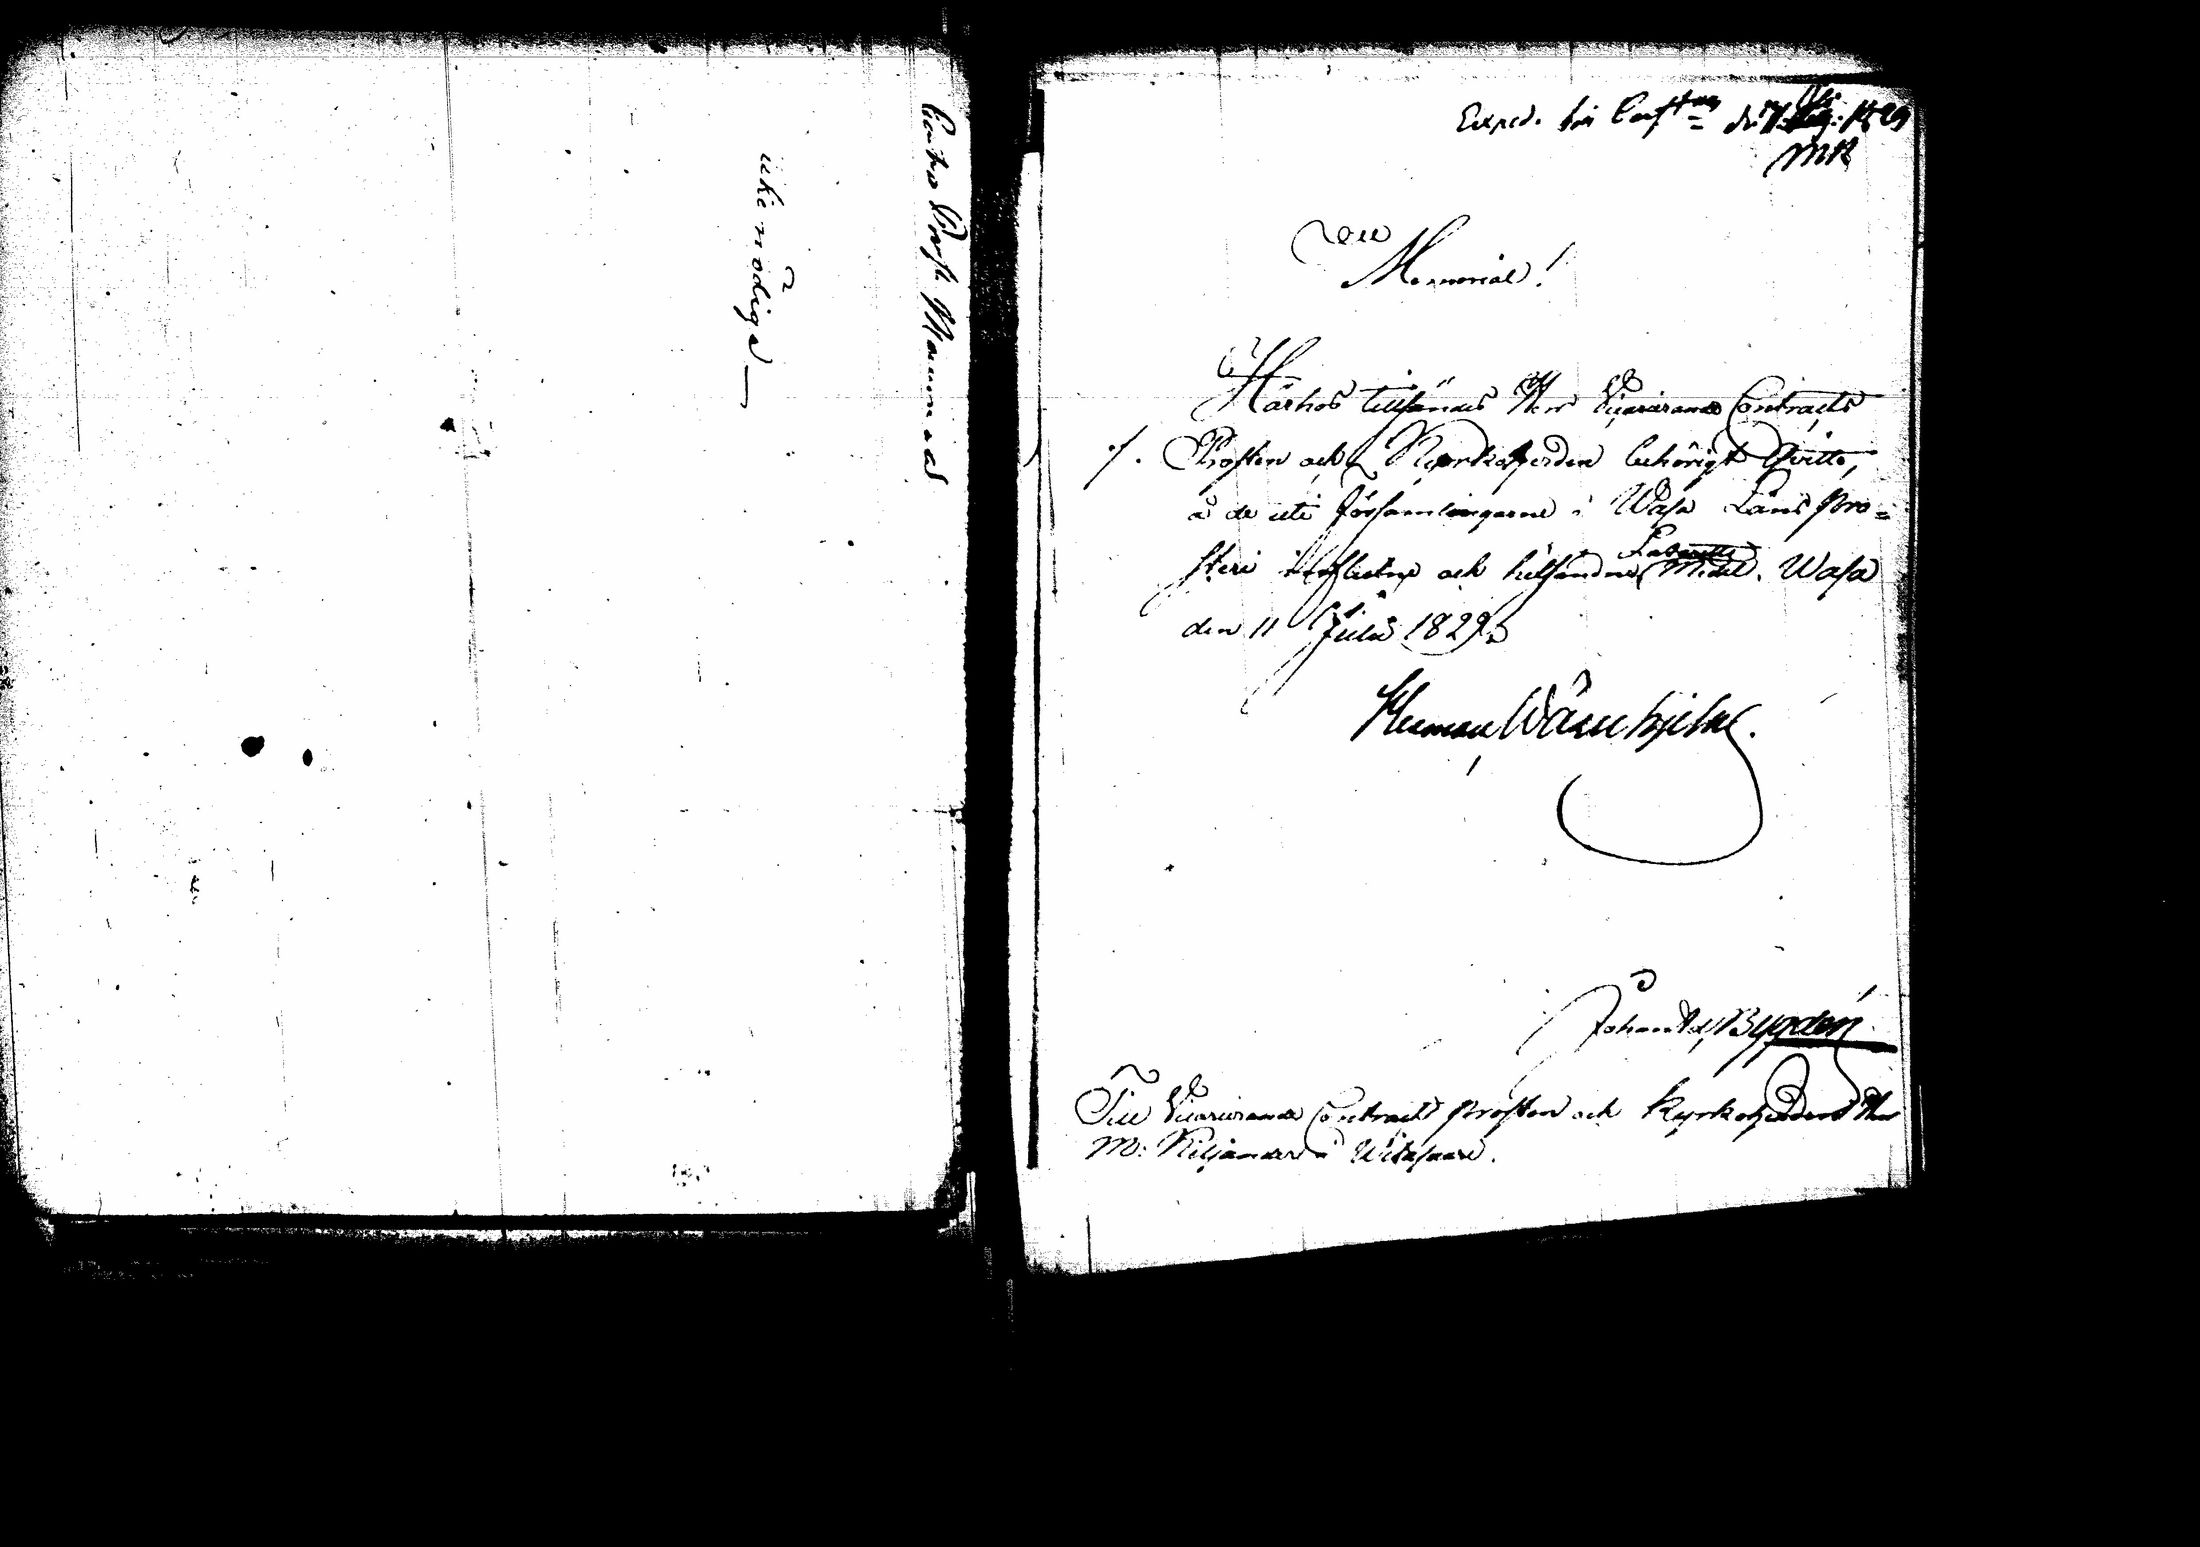 Contra Prosts Memorial
icke nödiga —
Exped. till Consist. 1829
MK
Memorial!
Härhos tillsändes Herr Vicarierande Contracts
./. Prosten och Kyrkoherden behörigt Qvitto,
å de uti församlingarne i Wasa Läns Pro=
steri influtne och hitsände Lazaretts Medel. Wasa
den 11 Julii 1829.
Herman Wärnhjelm.
Johan Bygdén
Till Vicarierande Contracts Prosten och Kyrkoherden Herr
M: Kiljander i Witasaari.